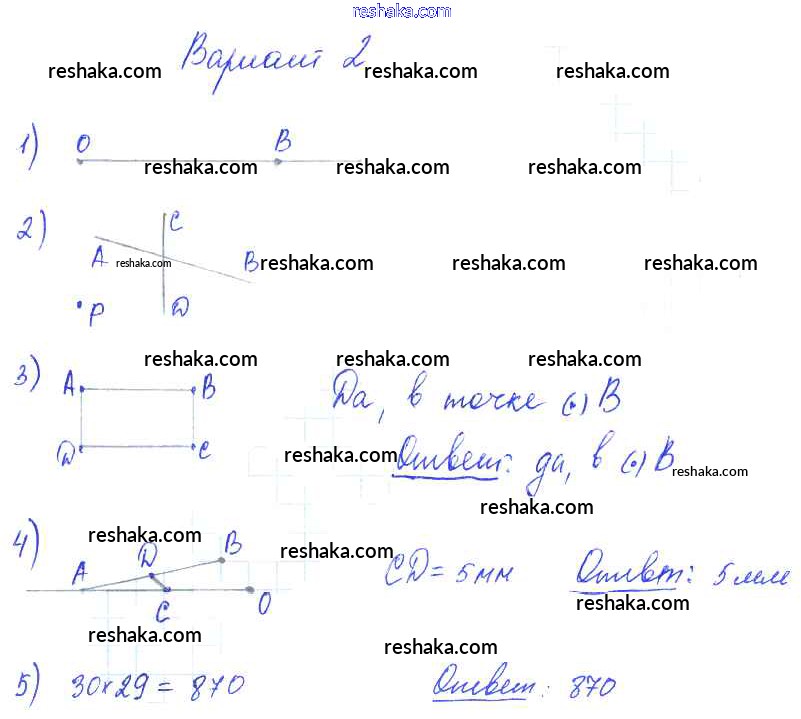 reshaka.com
Вариант 2
reshaka.com reshaka.com reshaka.com
1) O B
reshaka.com reshaka.com reshaka.com
2) C
A B
reshaka.com reshaka.com reshaka.com reshaka.com
P D
reshaka.com reshaka.com reshaka.com
3) A B Да, в точке (•) B
D C Ответ: да, в (•) B
reshaka.com reshaka.com
reshaka.com
reshaka.com
4) A D B
reshaka.com
C O CD = 5 мм Ответ: 5 мм
reshaka.com
reshaka.com reshaka.com
5) 30×29 = 870 Ответ: 870